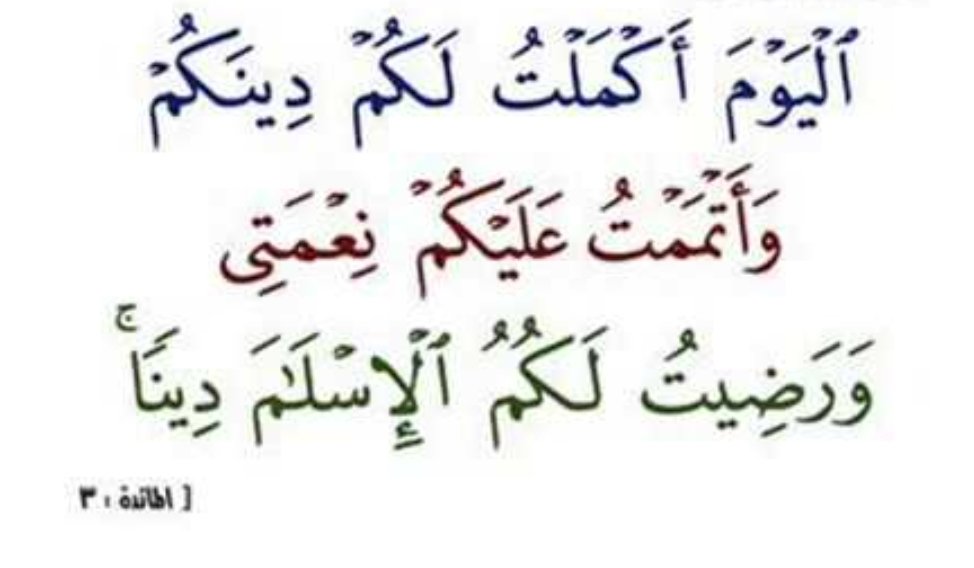 ٱلۡيَوۡمَ أَكۡمَلۡتُ لَكُمۡ دِينَكُمۡ
وَأَتۡمَمۡتُ عَلَيۡكُمۡ نِعۡمَتِي
وَرَضِيتُ لَكُمُ ٱلۡإِسۡلَٰمَ دِينٗاۚ
[ المائدة : ٣